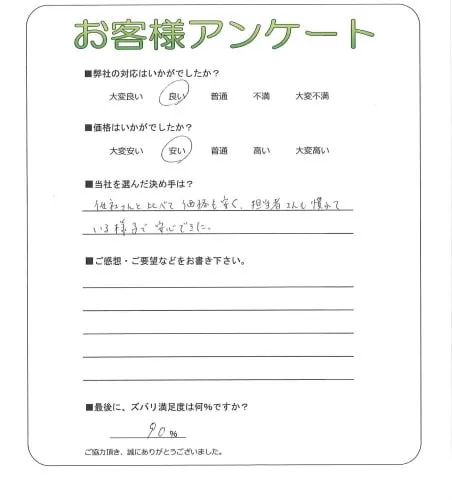 お客様アンケート
■弊社の対応はいかがでしたか？
大変良い 良い 普通 不満 大変不満
■価格はいかがでしたか？
大変安い 安い 普通 高い 大変高い
■当社を選んだ決め手は？
他社さんと比べて価格も安く、担当者さんも慣れて
いる様子で安心できた。
■ご感想・ご要望などをお書き下さい。
■最後に、ズバリ満足度は何%ですか？
90%
ご協力頂き、誠にありがとうございました。